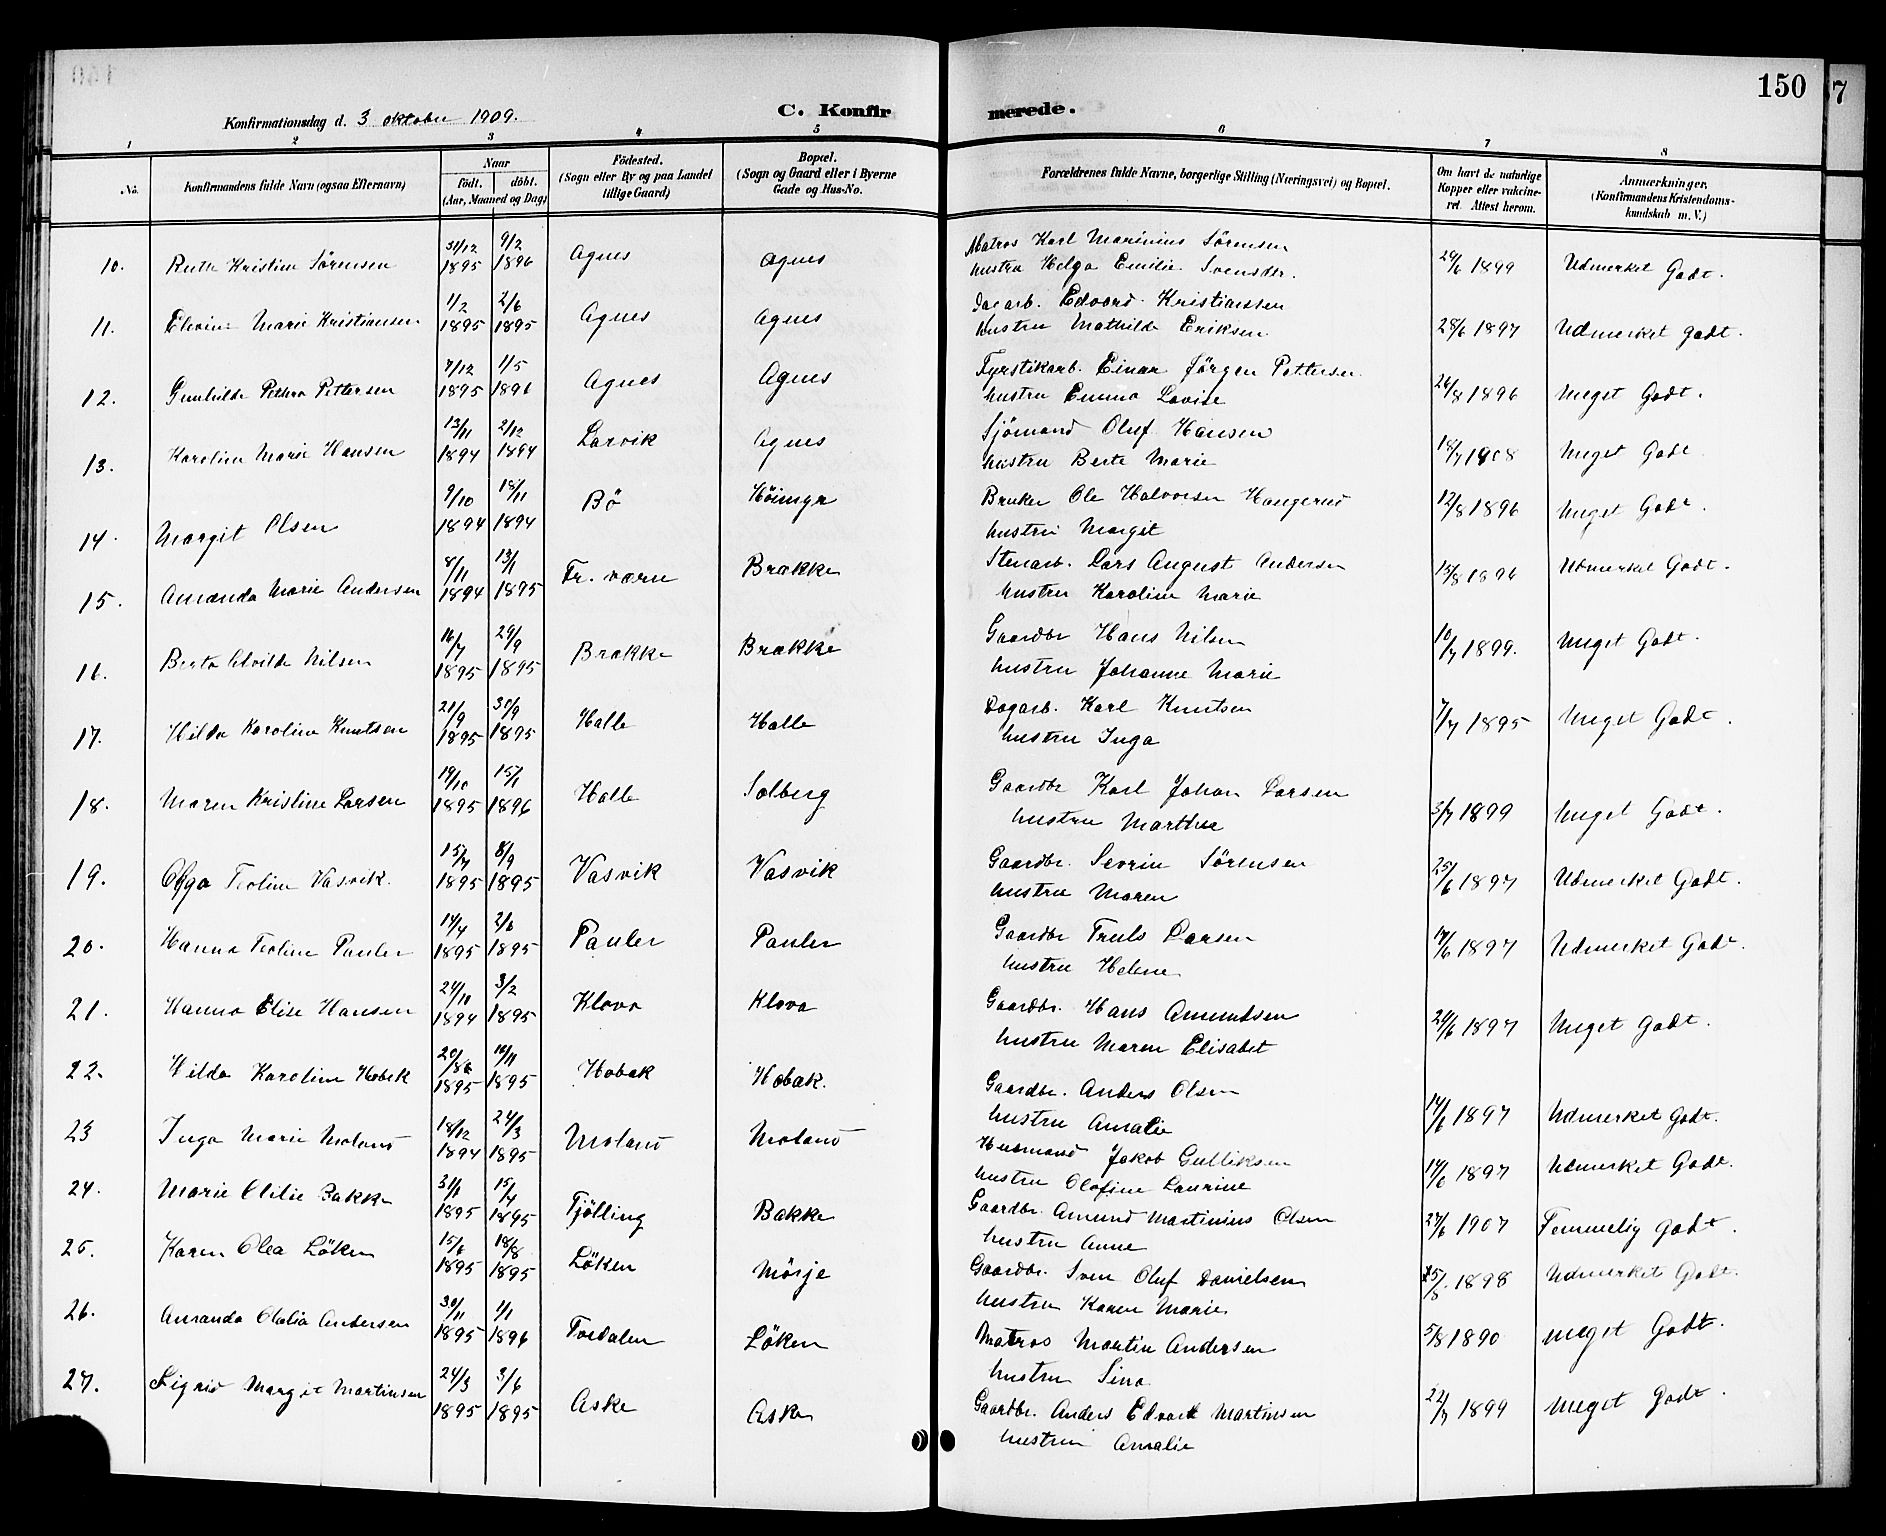 150
Konfirmationsdag d. 3 oktober 1909.
C. Konfirmerede.
1 2 3 4 5 6 7 8
No. Konfirmandens fulde Navn (ogsaa Efternavn) Naar födt. döbt. (Aar, Maaned og Dag) Födested. (Sogn eller By og paa Landet tillige Gaard) Bopæl. (Sogn og Gaard eller i Byerne Gade og Hus-No. Forældrenes fulde Navne, borgerlige Stilling (Næringsvei) og Bopæl. Om havt de naturlige Kopper eller vakcineret. Attest herom. Anmærkninger, (Konfirmandens Kristendomskundskab m. V.)
10. Ruth Kristine Sörensen 31/12 1895 9/2 1896 Agnes Agnes Matros Karl Marinius Sörensen
hustru Helga Emilie Svensdtr. 29/6 1899 Udmerket Godt.
11. Marie Kristiansen 1/2 1895 2/6 1895 Agnes Agnes Dagarb. Edvard Kristianssen
hustru Mathilde Eriksen 28/6 1897 Udmerket godt.
12. Gunhilde Petra Pettersen 7/12 1895 1/5 1896 Agnes Agnes Fyrstikarb. Einar Jörgen Pettersen
hustru Emma Lovise 26/8 1896 Meget Godt.
13. Karoline Marie Hansen 13/11 1894 2/12 1894 Larvik Agnes Sjömand Oluf Hansen
hustru Berte Marie 18/7 1908 Meget Godt
14. Margit Olsen 9/10 1894 18/11 1894 Bö Höimyr Bruker Ole Halvorsen
hustru Margit 12/8 1896 Meget Godt.
15. Amanda Marie Andersen 8/11 1894 13/1 1895 Fr.værn Brakke Stenarb. Lars August Andersen
hustru Karoline Marie 15/8 1896 Udmerket Godt.
16. Berta Alvilde Nilsen 16/7 1895 29/9 1895 Brakke Brakke Gaardbr Hans Nilsen
hustru Johanne Marie 10/7 1899. Meget Godt.
17. Hilda Karoline Knutsen 21/9 1895 30/9 1895 Halle Halle Dagarb. Karl Knutsen
hustru Inga 7/7 1895 Meget Godt.
18. Maren Kristine Larsen 19/10 1895 15/1 1896 Halle Solberg Gaardbr Karl Johan Larsen
hustru Marthe 3/7 1899 Meget Godt.
19. Olga Teoline Vasvik. 15/7 1895 8/9 1895 Vasvik Vasvik Gaardbr. Sevrin Sörensen
hustru Maren 25/6 1897 Udmerket Godt.
20. Hanna Teoline Pauler 14/4 1895 2/6 1895 Pauler Pauler Gaardbr Truls Larsen
hustru Helene 17/6 1897 Udmerket Godt.
21. Hanna Elise Hansen 24/10 1894 3/2 1895 Klova Klova Gaardbr. Hans Amundsen
hustru Maren Elisabet 24/6 1897 Meget Godt.
22. Hilda Karoline Hobæk 1895 10/11 1895 Hobæk Hobæk. Gaardbr. Anders Olsen
hustru Amalie 14/6 1897 Udmerket Godt.
23 Inga Marie Moland 18/12 1894 24/3 1895 Moland Moland Husmand Jakob Gulliksen
hustru Olofine Laurine 14/6 1897 Udmerket Godt.
24. Marie Otilie Bakke 31/1 1895 15/4 1895 Tjölling Bakke Gaardbr. Amund Martinius Olsen
hustru Anne 27/6 1907 Temmelig Godt.
25. Karen Olea Löken 15/6 1895 18/8 1895 Löken Mörje Gaardbr. Sven Oluf Danielsen
hustru Karen Marie 25/8 1898 Udmerket Godt.
26. Amanda Olalia Andersen 30/11 1895 1/1 1896 Tvedalen Löken Matros Martin Andersen
hustru Sina 5/8 1890 Meget Godt.
27. Sigrid Margit Martinsen 24/3 1895 3/6 1895 Aske Aske Gaardbr. Anders Edvart Martinsen
hustru Amalie 22/7 1899 Meget Godt.